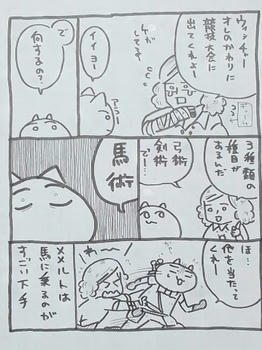 ウィッチャー
オレのかわりに
競技大会に
出てくれよー
ケガ
してる
イイヨー
で
何するの？
3種類の
種目が
あるんだ
弓術
剣術
でー…
馬術
ほ…
他を当たって
くれー
わー
メメルトは
馬に乗るのが
すごい下手